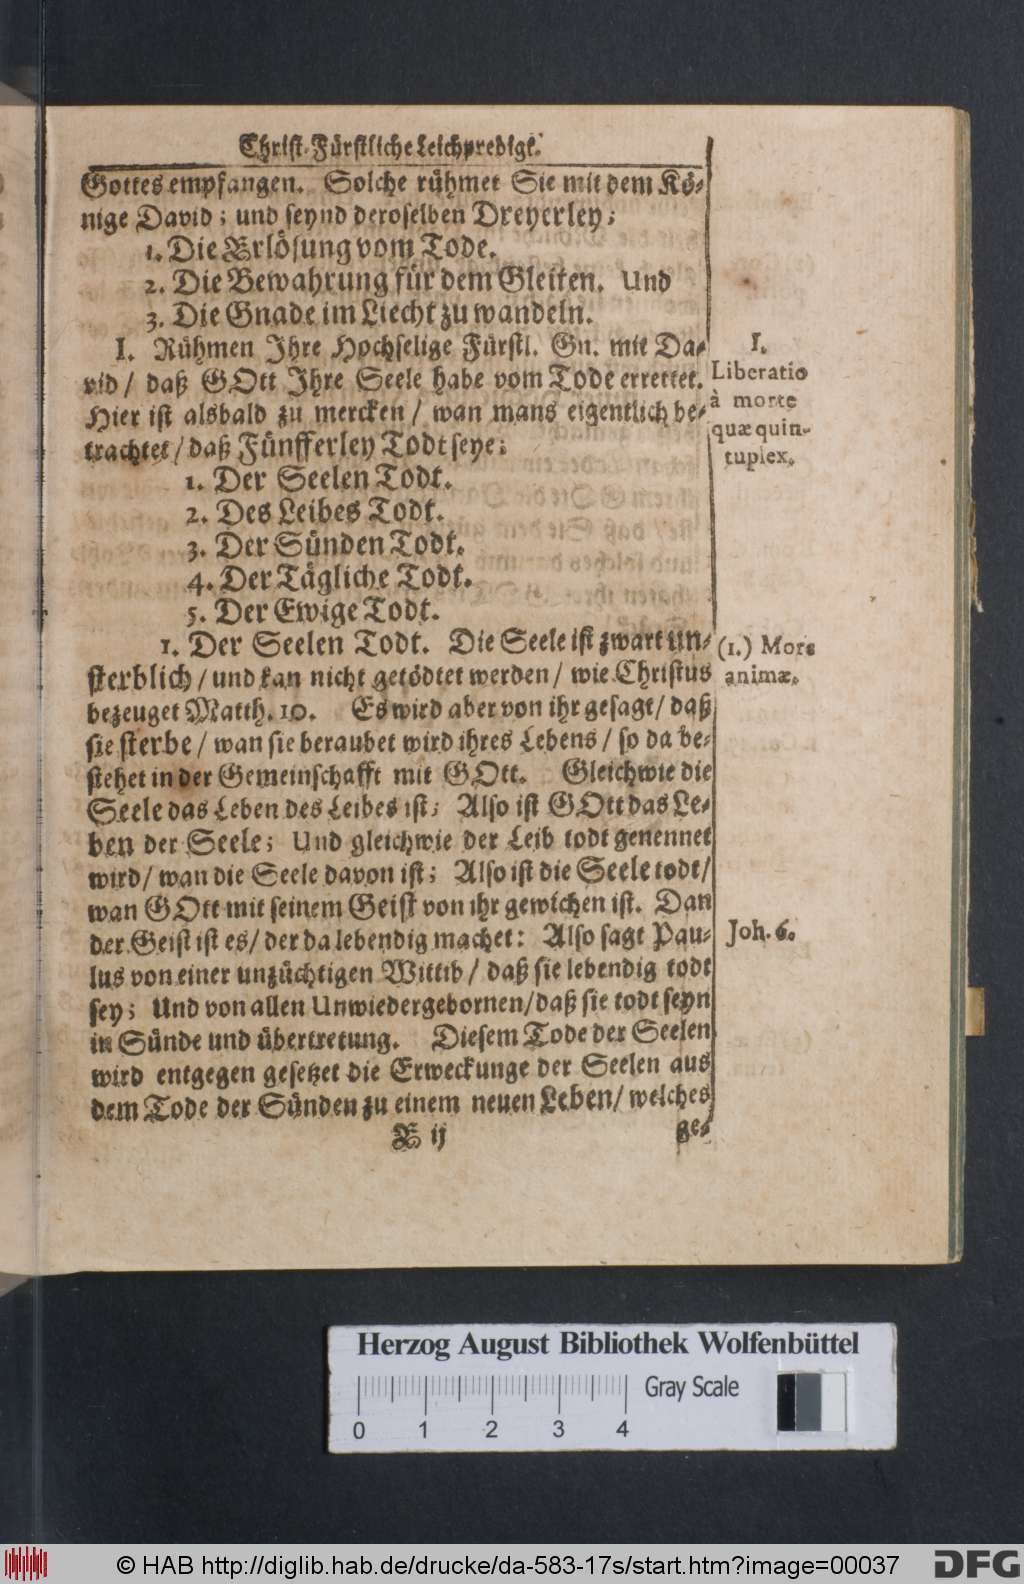 Christ-Fürstliche Leichpredigt.
Gottes empfangen. Solche rühmet Sie mit dem Kö-
nige David; und seynd deroselben Dreyerley;
1. Die Erlösung vom Tode.
2. Die Bewahrung für dem Gleiten. Und
3. Die Gnade im Liecht zu wandeln.
I. Rühmen Ihre Hochselige Fürstl. Gn. mit Da-
vid / daß GOtt Ihre Seele habe vom Tode errettet.
Hier ist alsbald zu mercken / wan mans eigentlich be-
trachtet / daß Fünfferley Todt seye:
I.
Liberatio
à morte
quæ quin-
tuplex.
1. Der Seelen Todt.
2. Des Leibes Todt.
3. Der Sünden Todt.
4. Der Tägliche Todt.
5. Der Ewige Todt.
1. Der Seelen Todt. Die Seele ist zwart un-
sterblich / und kan nicht getödtet werden / wie Christus
bezeuget Matth. 10. Es wird aber von ihr gesagt / daß
sie sterbe / wan sie beraubet wird ihres Lebens / so da be-
stehet in der Gemeinschafft mit GOtt. Gleichwie die
Seele das Leben des Leibes ist; Also ist GOtt das Le-
ben der Seele; Und gleichwie der Leib todt genennet
wird / wan die Seele davon ist; Also ist die Seele todt /
wan GOtt mit seinem Geist von ihr gewichen ist. Dan
der Geist ist es / der da lebendig machet: Also sagt Pau-
lus von einer unzüchtigen Wittib / daß sie lebendig todt
sey; Und von allen Unwiedergebornen / daß sie todt seyn
in Sünde und übertretung. Diesem Tode der Seelen
wird entgegen gesetzet die Erweckunge der Seelen aus
dem Tode der Sünden zu einem neuen Leben / welches
(1.) Mors
animæ.
Joh. 6.
B ij
ge-
Herzog August Bibliothek Wolfenbüttel
0 1 2 3 4
Gray Scale
© HAB http://diglib.hab.de/drucke/da-583-17s/start.htm?image=00037
DFG